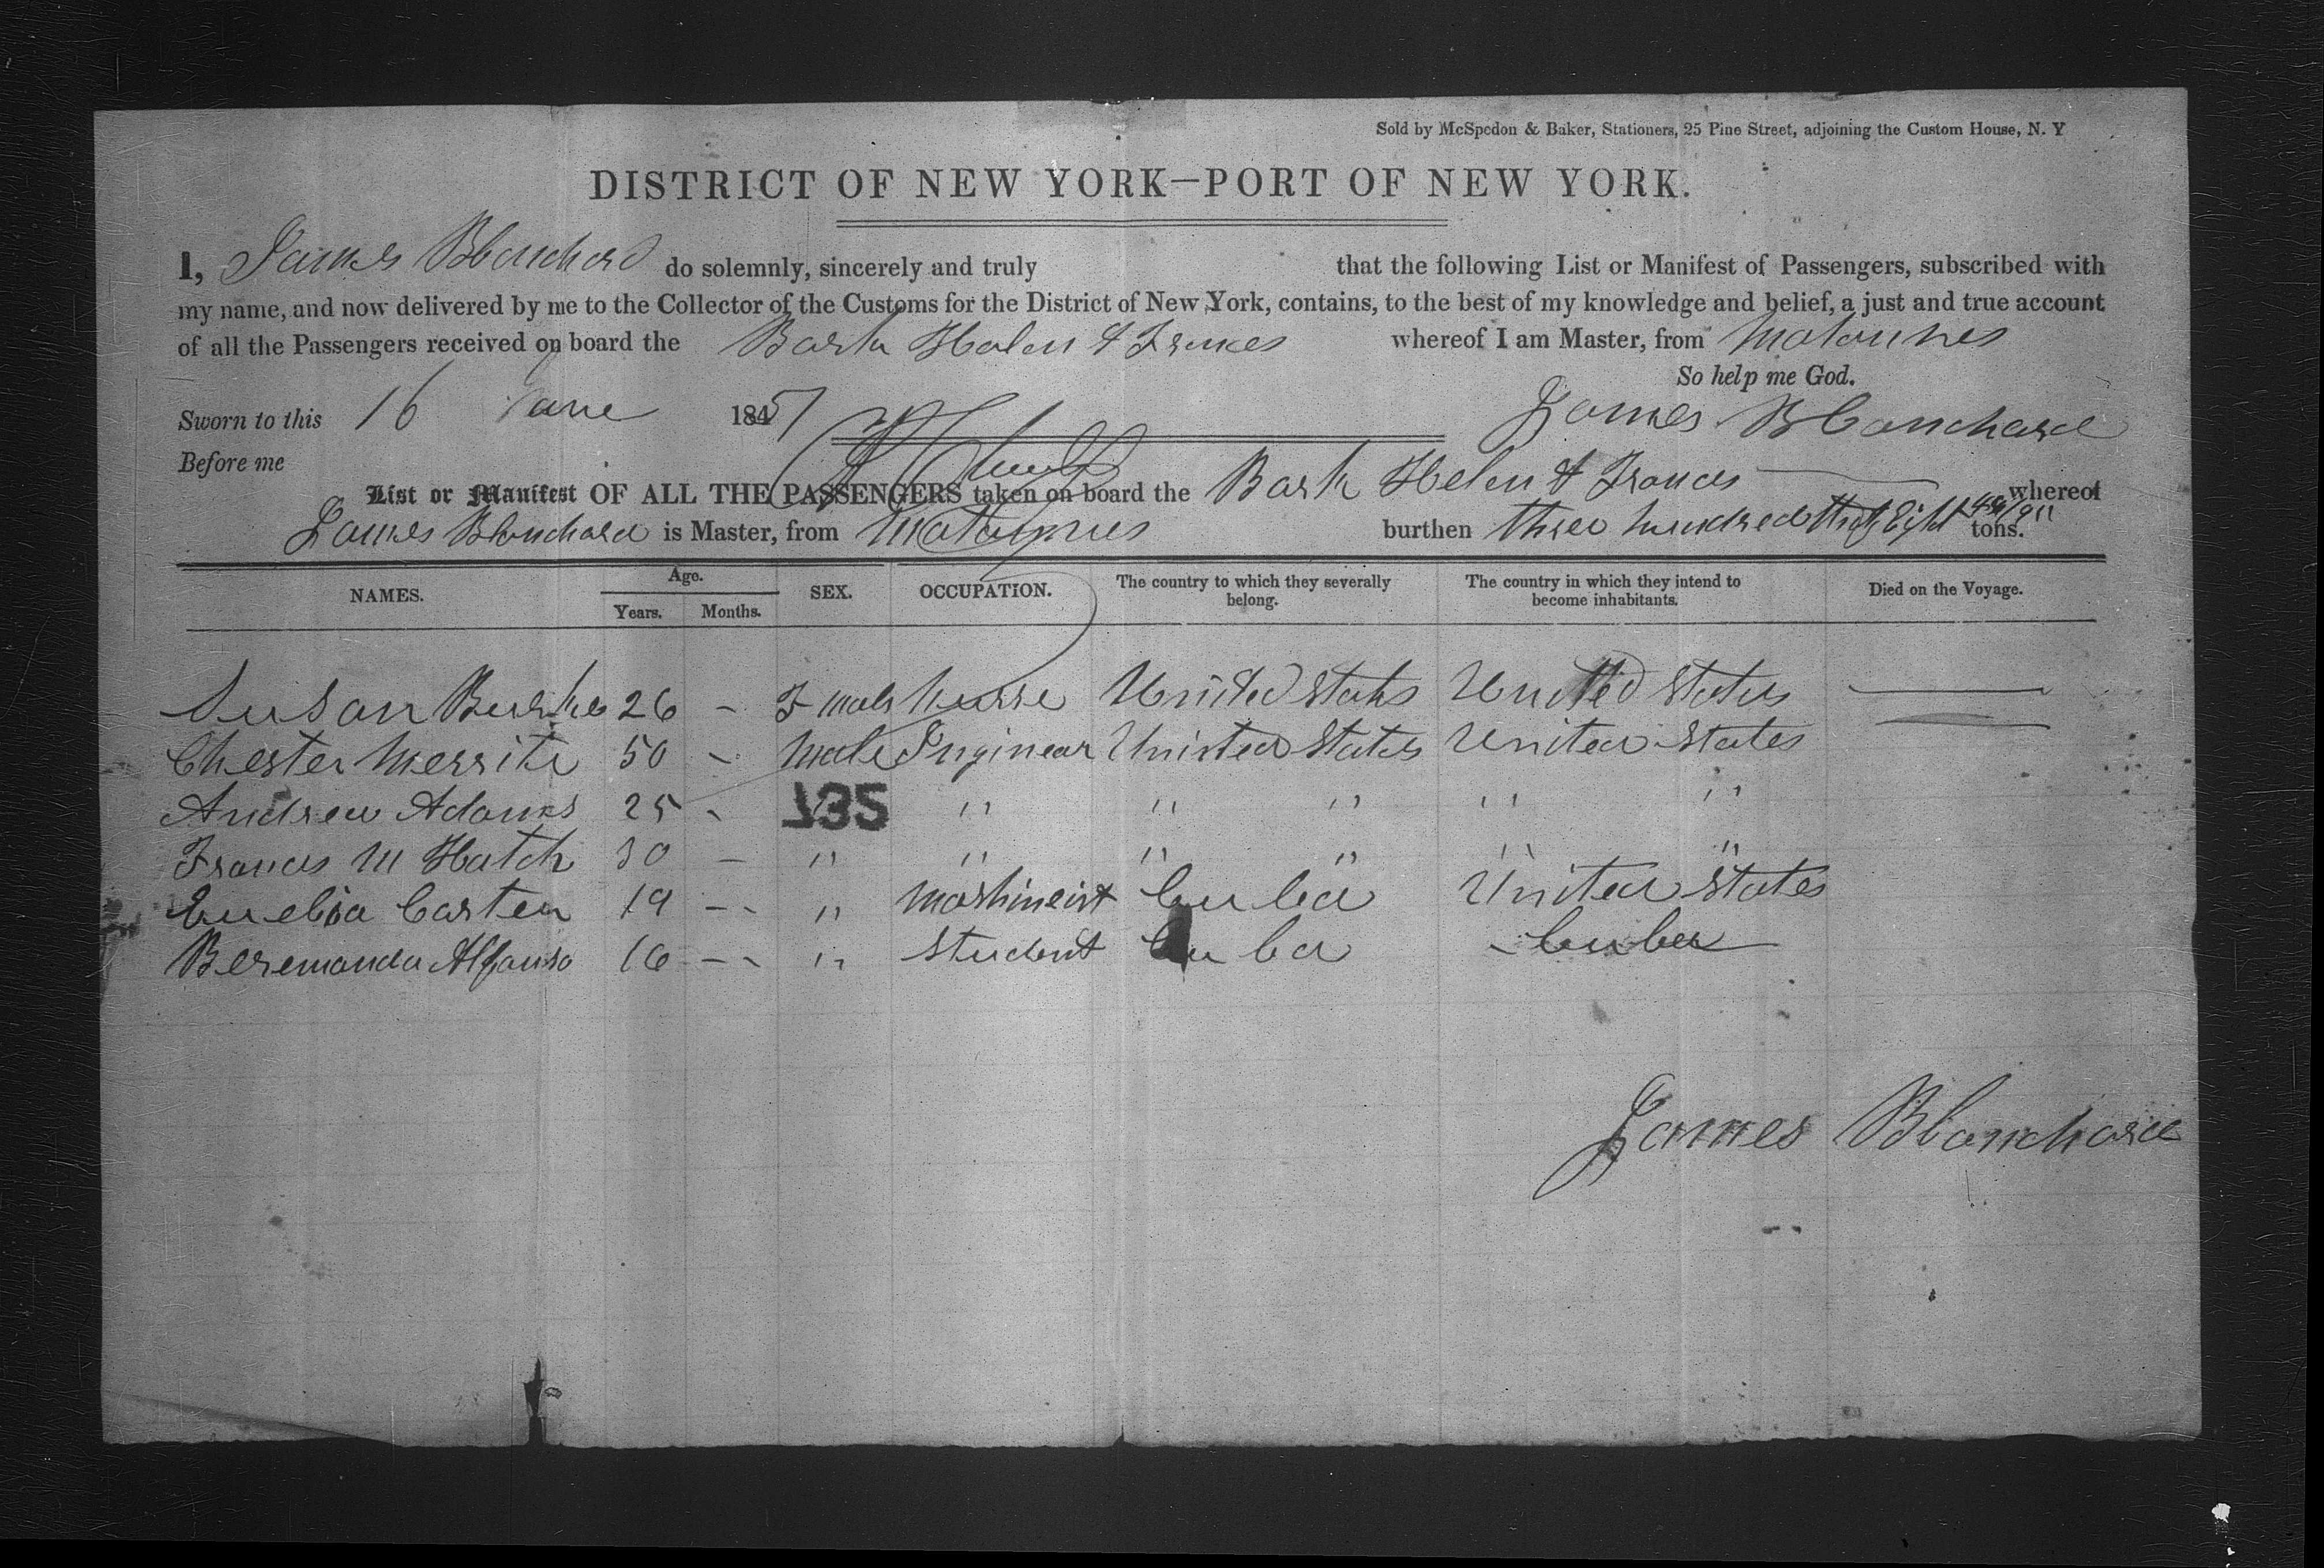 Sold by McSpedon & Baker, Stationers, 25 Pine Street, adjoining the Custom House, N. Y
DISTRICT OF NEW YORK—PORT OF NEW YORK.
I, James Blanchard do solemnly, sincerely and truly that the following List or Manifest of Passengers, subscribed with
my name, and now delivered by me to the Collector of the Customs for the District of New York, contains, to the best of my knowledge and belief, a just and true account
of all the Passengers received on board the Bark Helen & Frances whereof I am Master, from Matannes
So help me God.
Sworn to this 16 June 184 James Blanchard
Before me
List or Manifest OF ALL THE PASSENGERS taken on board the Bark Helen & Frances whereof
James Blanchard is Master, from burthen three hundred thirty Eight tons.
NAMES. Age. Years. Months. SEX. OCCUPATION. The country to which they severally belong. The country in which they intend to become inhabitants. Died on the Voyage.
Susan Burke 26 - Female nurse United States United States —
Chester Merrite 50 - Male Inginear Uninted States United States —
Andrew Adams 25 - 135 " " " " "
Francis M Hatch 30 - " " " " " "
Carten 19 - - " Mashineist Cuba United States
Alfanso 16 - - " Student Cuba Cuba
James Blanchard